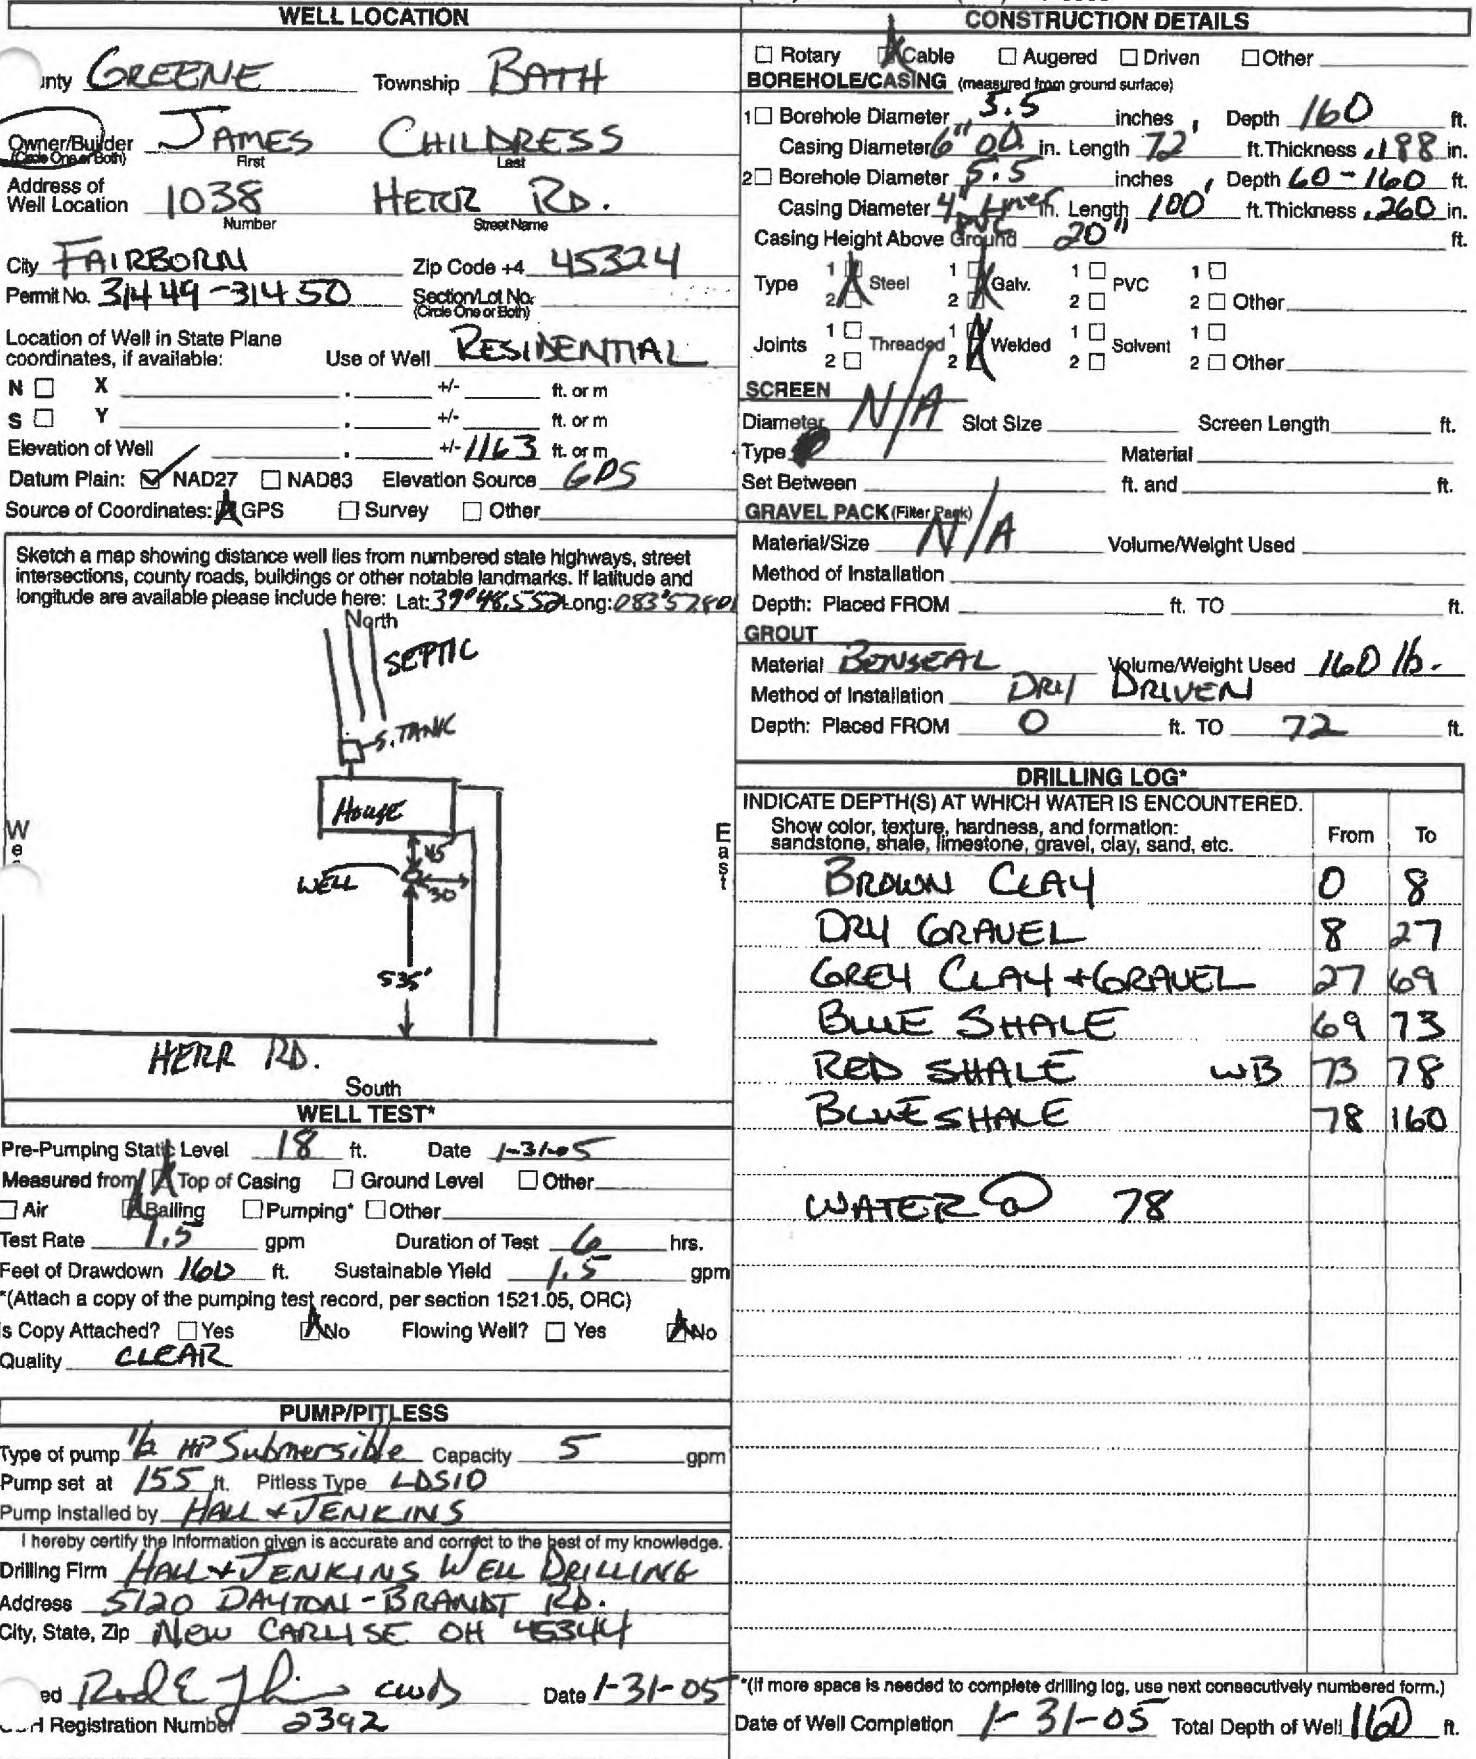 WELL LOCATION
unty GREENE Township BATH
Owner/Builder JAMES CHILDRESS
(Circle One or Both) First Last
Address of
Well Location 1038 HERR RD.
Number Street Name
City FAIRBORN Zip Code +4 45324
Permit No. 31449-31450 Section/Lot No.
(Circle One or Both)
Location of Well in State Plane
coordinates, if available: Use of Well RESIDENTIAL
N ☐ X . +/- ft. or m
S ☐ Y . +/- ft. or m
Elevation of Well . +/- 1163 ft. or m
Datum Plain: ☑ NAD27 ☐ NAD83 Elevation Source GPS
Source of Coordinates: ☒ GPS ☐ Survey ☐ Other
Sketch a map showing distance well lies from numbered state highways, street
intersections, county roads, buildings or other notable landmarks. If latitude and
longitude are available please include here: Lat: 39°48.552 Long: 083°57801
North
SEPTIC
S. TANK
House
We
East
45'
WELL
30'
535'
HERR RD.
South
WELL TEST*
Pre-Pumping Static Level 18 ft. Date 1-31-05
Measured from ☒ Top of Casing ☐ Ground Level ☐ Other
☐ Air ☒ Bailing ☐ Pumping* ☐ Other
Test Rate 1.5 gpm Duration of Test 6 hrs.
Feet of Drawdown 160 ft. Sustainable Yield 1.5 gpm
*(Attach a copy of the pumping test record, per section 1521.05, ORC)
Is Copy Attached? ☐ Yes ☒ No Flowing Well? ☐ Yes ☒ No
Quality CLEAR
PUMP/PITLESS
Type of pump 1/2 HP Submersible Capacity 5 gpm
Pump set at 155 ft. Pitless Type LDS10
Pump installed by HALL + JENKINS
I hereby certify the information given is accurate and correct to the best of my knowledge.
Drilling Firm HALL + JENKINS WELL DRILLING
Address 5120 DAYTON-BRANDT RD.
City, State, Zip NEW CARLISE OH 45344
ed Date 1-31-05
H Registration Number 2392
CONSTRUCTION DETAILS
☐ Rotary ☒ Cable ☐ Augered ☐ Driven ☐ Other
BOREHOLE/CASING (measured from ground surface)
1 ☐ Borehole Diameter 5.5 inches , Depth 160 ft.
Casing Diameter 6" OD. in. Length 72 ft. Thickness .188 in.
2 ☐ Borehole Diameter 5.5 inches , Depth 60-160 ft.
Casing Diameter 4" Liner in. Length 100' ft. Thickness .260 in.
PVC
Casing Height Above Ground 20" ft.
Type 1 ☒ Steel 1 ☒ Galv. 1 ☐ PVC 1 ☐
2 ☒ 2 ☒ 2 ☐ 2 ☐ Other
Joints 1 ☐ Threaded 1 ☒ Welded 1 ☐ Solvent 1 ☐
2 ☐ 2 ☒ 2 ☐ 2 ☐ Other
SCREEN
Diameter N/A Slot Size Screen Length ft.
Type Material
Set Between ft. and ft.
GRAVEL PACK (Filter Pack)
Material/Size N/A Volume/Weight Used
Method of Installation
Depth: Placed FROM ft. TO ft.
GROUT
Material BENSEAL Volume/Weight Used 160 lb.
Method of Installation DRY DRIVEN
Depth: Placed FROM 0 ft. TO 72 ft.
DRILLING LOG*
INDICATE DEPTH(S) AT WHICH WATER IS ENCOUNTERED.
Show color, texture, hardness, and formation: From To
sandstone, shale, limestone, gravel, clay, sand, etc.
BROWN CLAY 0 8
DRY GRAVEL 8 27
GREY CLAY + GRAVEL 27 69
BLUE SHALE 69 73
RED SHALE WB 73 78
BLUE SHALE 78 160
WATER @ 78
*(If more space is needed to complete drilling log, use next consecutively numbered form.)
Date of Well Completion 1-31-05 Total Depth of Well 160 ft.